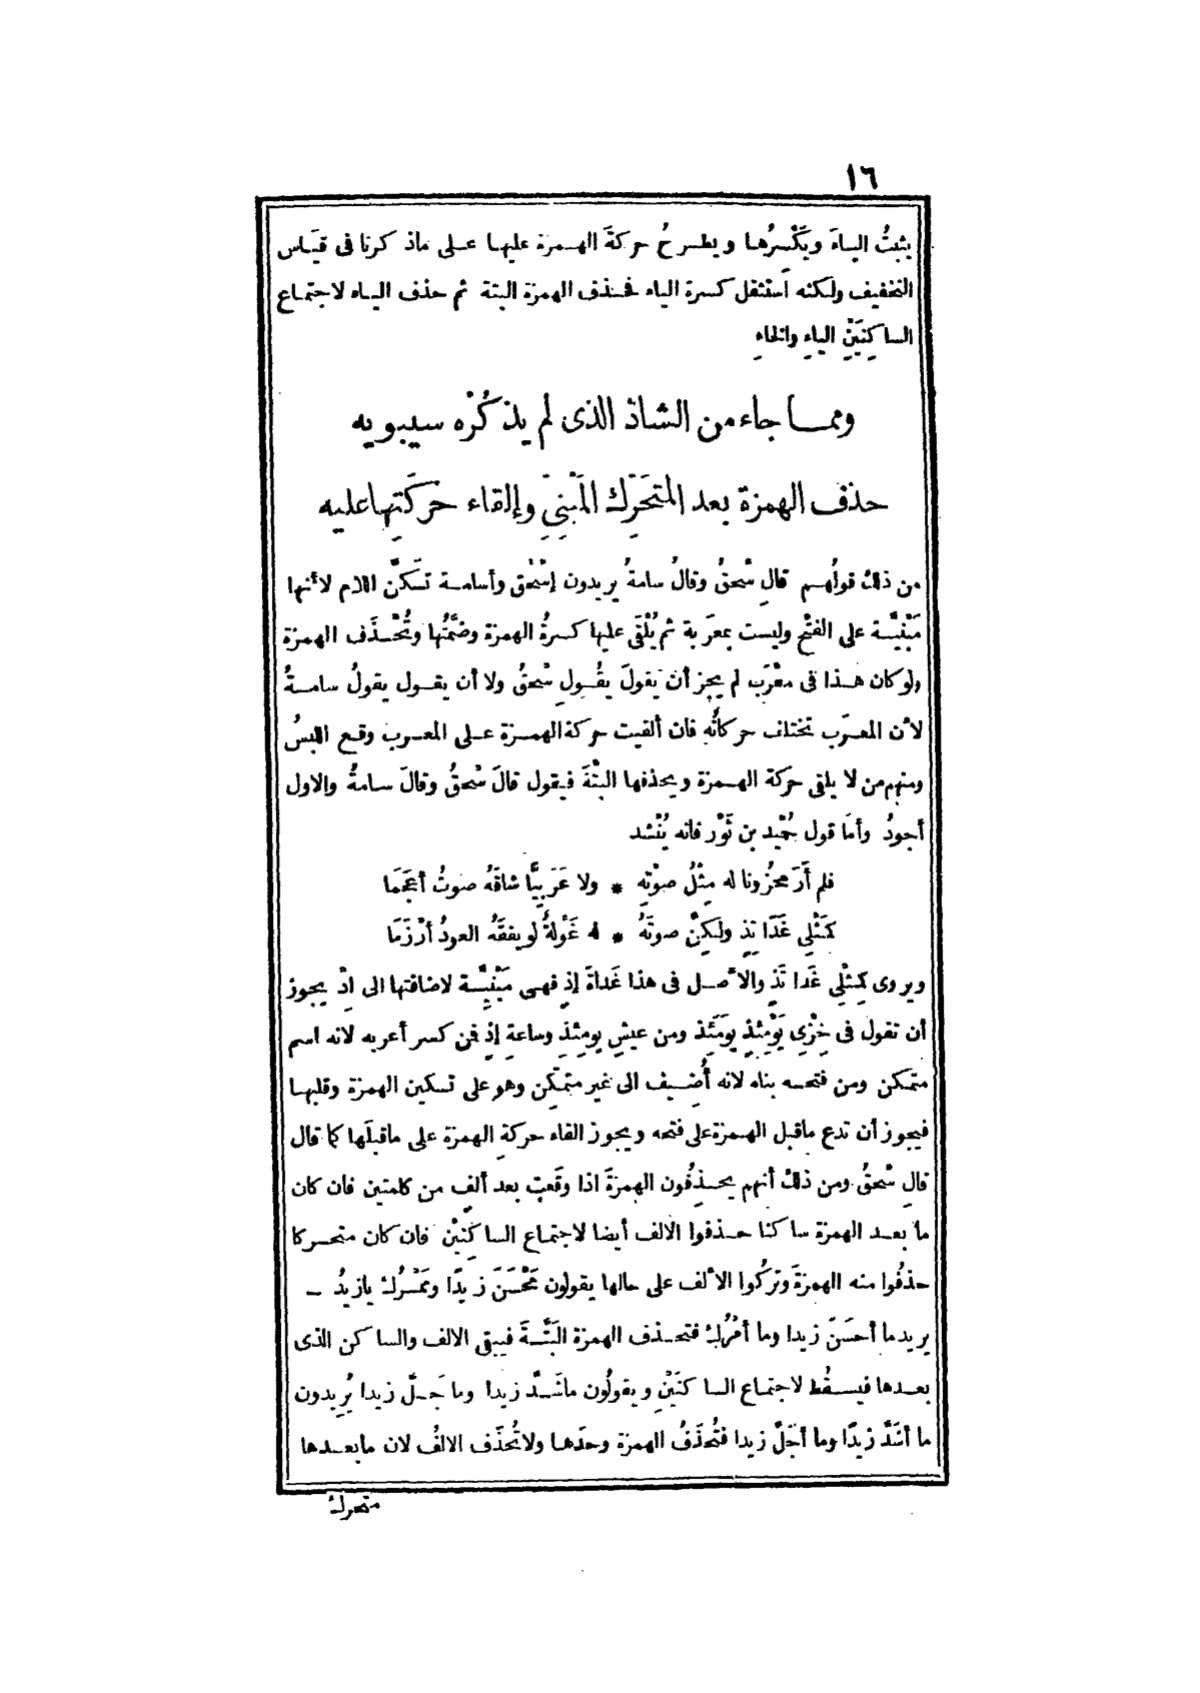 ١٦
يثبتُ الياءَ ويَكْسرُها ويطرحُ حركةَ الهمزة عليها على ماذكرنا فى قيَاس
التخفيف ولكنه اَستثقل كسرة الياء فحذف الهمزة البتة ثم حذف الياء لاجتماع
الساكِنَيْنِ الياءِ والخاءِ
ومما جاء من الشاذ الذى لم يذكُرْه سيبويه
حذف الهمزة بعد المتحَرِّك المَبْنِيِّ وإلقاء حَرَكَتِها عليه
من ذلك قولُهم قالِ سْحقُ وقالُ سامةُ يريدون إسْحٰق وأسامة تسَكَّن اللام لأنها
مَبْنيَّة على الفتْح وليست بمعَربة ثم يُلْقَى عليها كسرةُ الهمزة وضَمَّتُها وتُحْذَف الهمزة
ولو كان هذا فى معْرَب لم يجز أن يقولَ يقُولِ سْحقُ ولا أن يقول يقولُ سامةُ
لأن المعرَب تختلف حركاتُه فان ألقيت حركة الهمزة على المعرب وقع اللبسُ
ومنهم من لا يلقى حركة الهمزة ويحذفها البتَّةَ فيقول قالَ سْحقُ وقالَ سامةُ والاول
أجودُ وأما قول حُمَيْد بن ثَوْر فانه يُنْشد
فلم أَرَ محزُونا له مِثْلُ صوْتِهِ * ولا عَرَبيًّا شاقَهُ صوتُ أعجَمَا
كمَثْلِي غَدَا تَئِذٍ ولكِنَّ صوتَهُ * له عَوْلةٌ لو يفقَهُ العودُ أرْزَمَا
ويروى كمِثْلِي غَدا تَذٍ والأصل فى هذا غَداةَ إذٍ فهى مَبْنيَّة لاضافتها الى اذْ يجوز
أن تقول فى خِزْىِ يَوْمِئذٍ يوَمَئِذ ومن عيشِ يومِئذٍ وساعةِ إذٍ فمن كسر أعربه لانه اسم
متمكن ومن فتحه بناه لانه أُضيف الى غير متمَكِّن وهو على تسكين الهمزة وقلبها
فيجوز أن تدع ماقبل الهمزة على فتحه ويجوز القاء حركةِ الهمزة على ماقبلَها كما قال
قالِ سْحقُ ومن ذلك أنهم يحذِفُون الهمزةَ اذا وقَعت بعد ألفٍ من كلمتين فان كان
ما بعد الهمزة ساكنا حذفوا الالف أيضا لاجتماع الساكِنَيْن فان كان متحركا
حذفُوا منه الهمزةَ وتركُوا الألف على حالها يقولون مَحْسَنَ زيدًا ومَمْرُك يازيدُ —
يريد ما أحسَنَ زيدا وما أمْرُك فتحذف الهمزة البَتَّةَ فيبقى الالف والساكن الذى
بعدها فيسقُط لاجتماع الساكنَيْنِ ويقولُون ماشَدَّ زيدا وما جَلَّ زيدا يُريدون
ما أشَدَّ زيدًا وما أجَلَّ زيدا فتُحذَفُ الهمزة وحدَها ولا تُحذَف الالفُ لان مابعدها
متحرك